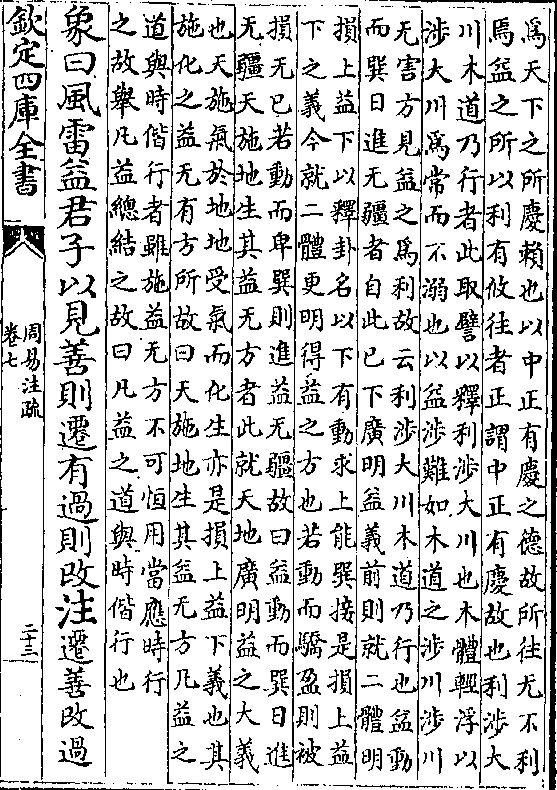 為天下之所慶賴也以中正有慶之德故所往无不利
焉益之所以利有攸往者正謂中正有慶故也利涉大
川木道乃行者此取譬以釋利涉大川也木體輕浮以
涉大川為常而不溺也以益涉難如木道之涉川涉川
无害方見益之為利故云利涉大川木道乃行也益動
而巽日進无疆者自此已下廣明益義前則就二體明
損上益下以釋卦名以下有動求上能巽接是損上益
下之義今就二體更明得益之方也若動而驕盈則被
損无已若動而卑巽則進益无疆故曰益動而巽日進
无疆天施地生其益无方者此就天地廣明益之大義
也天施氣於地地受氣而化生亦是損上益下義也其
施化之益无有方所故曰天施地生其益无方凡益之
道與時偕行者雖施益无方不可恒用當應時行
之故舉凡益總結之故曰凡益之道與時偕行也
象曰風雷益君子以見善則遷有過則改注遷善改過
欽定四庫全書
周易注疏
卷七
二十三